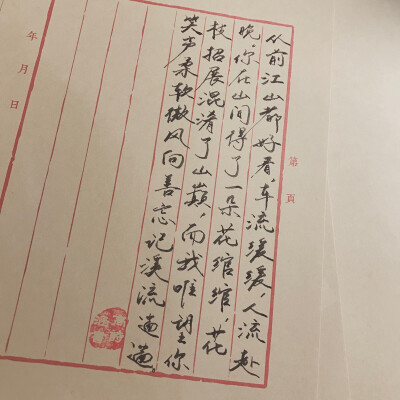 第 頁
从前江山都好看，车流缓缓，人流赴
晚，你在山间得了一朵花绾绾，花
枝招展混淆了山巅，而我唯望你
笑声柔软微风向善忘记溪流遄遄，
年 月 日